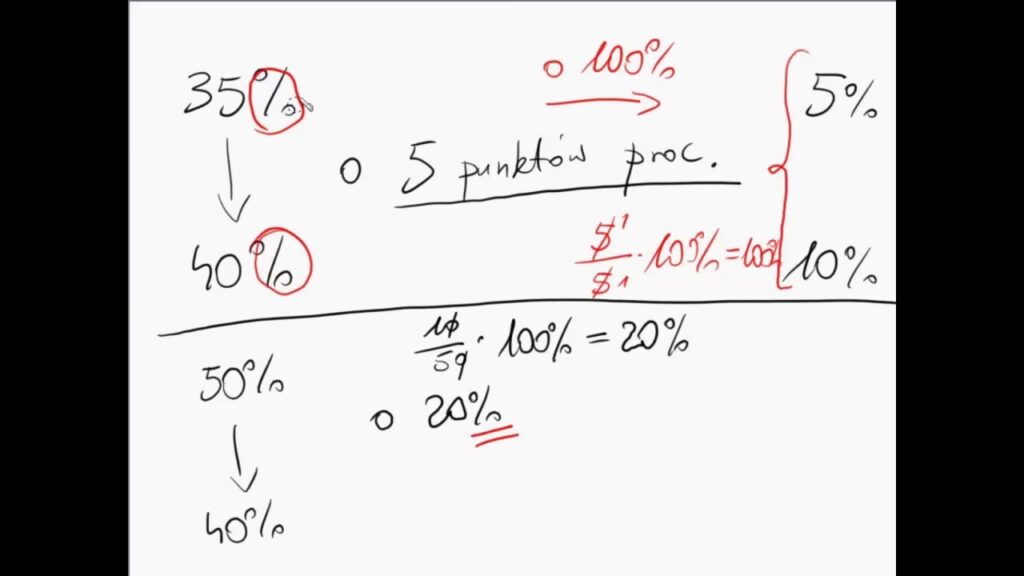 35%
o 100%
5%
o 5 punktów proc.
40%
5/5 1/1 · 100% = 100%
10%
50%
10/50 · 100% = 20%
o 20%
40%